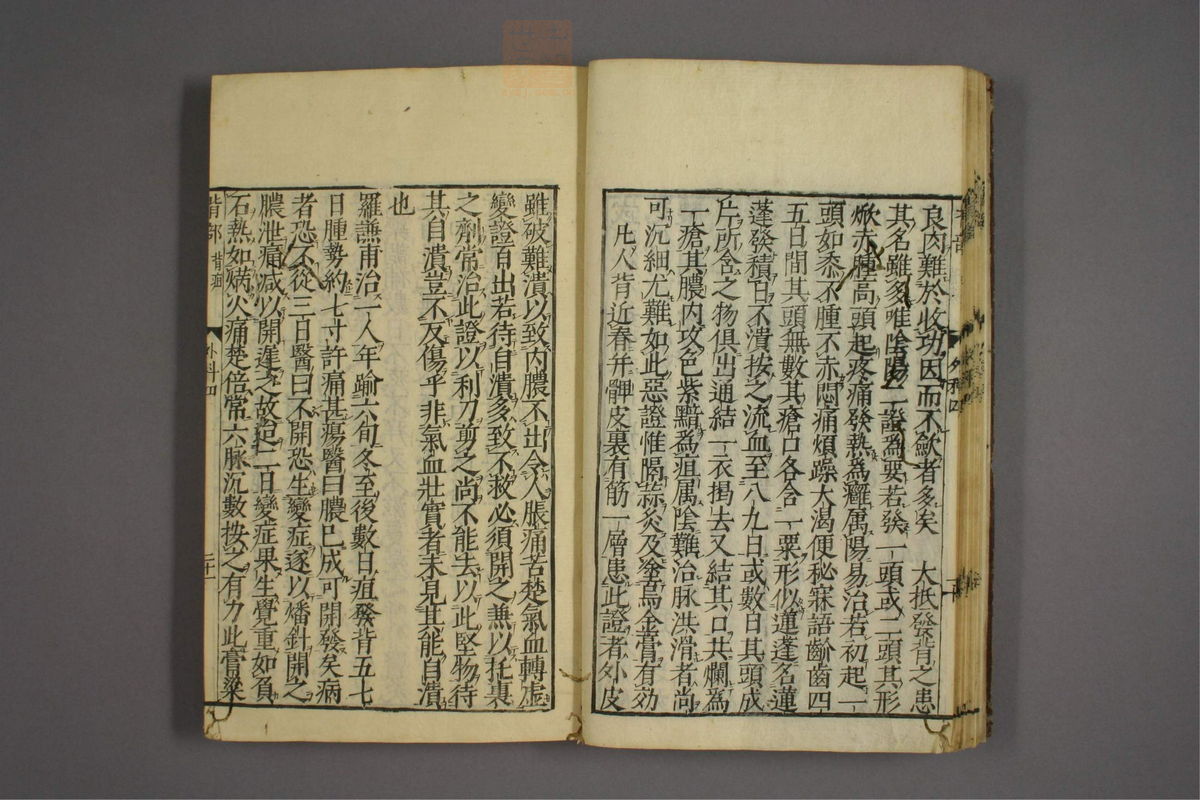 良肉難於收功因而不歛者多矣　大抵發背之患
其名雖多唯陰陽二證爲要若發一頭或二頭其形
焮赤腫高頭起疼痛發熱爲癰属陽易治若初起一
頭如黍不腫不赤悶痛煩躁大渴便秘寐語齘齒四
五日間其頭無數其瘡口各含一粟形似蓮蓬名蓮
蓬發積日不潰按之流血至八九日或數日其頭成
片所含之物俱出通結一衣揭去又結其口共爛爲
一瘡其膿内攻色紫黯爲疽属陰難治脉洪滑者尚
可沉細尤難如此惡證惟隔蒜灸及塗烏金膏有効
凡人背近脊并髀皮裏有筋一層患此證者外皮
雖破難潰以致内膿不出令人脹痛苦楚氣血轉虚
變證百出若待自潰多致不救必須開之兼以托裏
之劑常治此證以利刀剪之尚不能去以此堅物待
其自潰豈不反傷乎非氣血壯實者未見其能自潰
也
羅謙甫治一人年踰六旬冬至後數日疽發背五七
日腫勢約七寸許痛甚瘍醫曰膿已成可開發矣病
者恐不從三日醫曰不開恐生變症遂以燔針開之
膿泄痛减以開遲之故迨二日變症果生覺重如負
石熱如焫火痛楚倍常六脉沉數按之有力此膏粱
背部　外科四　二十一